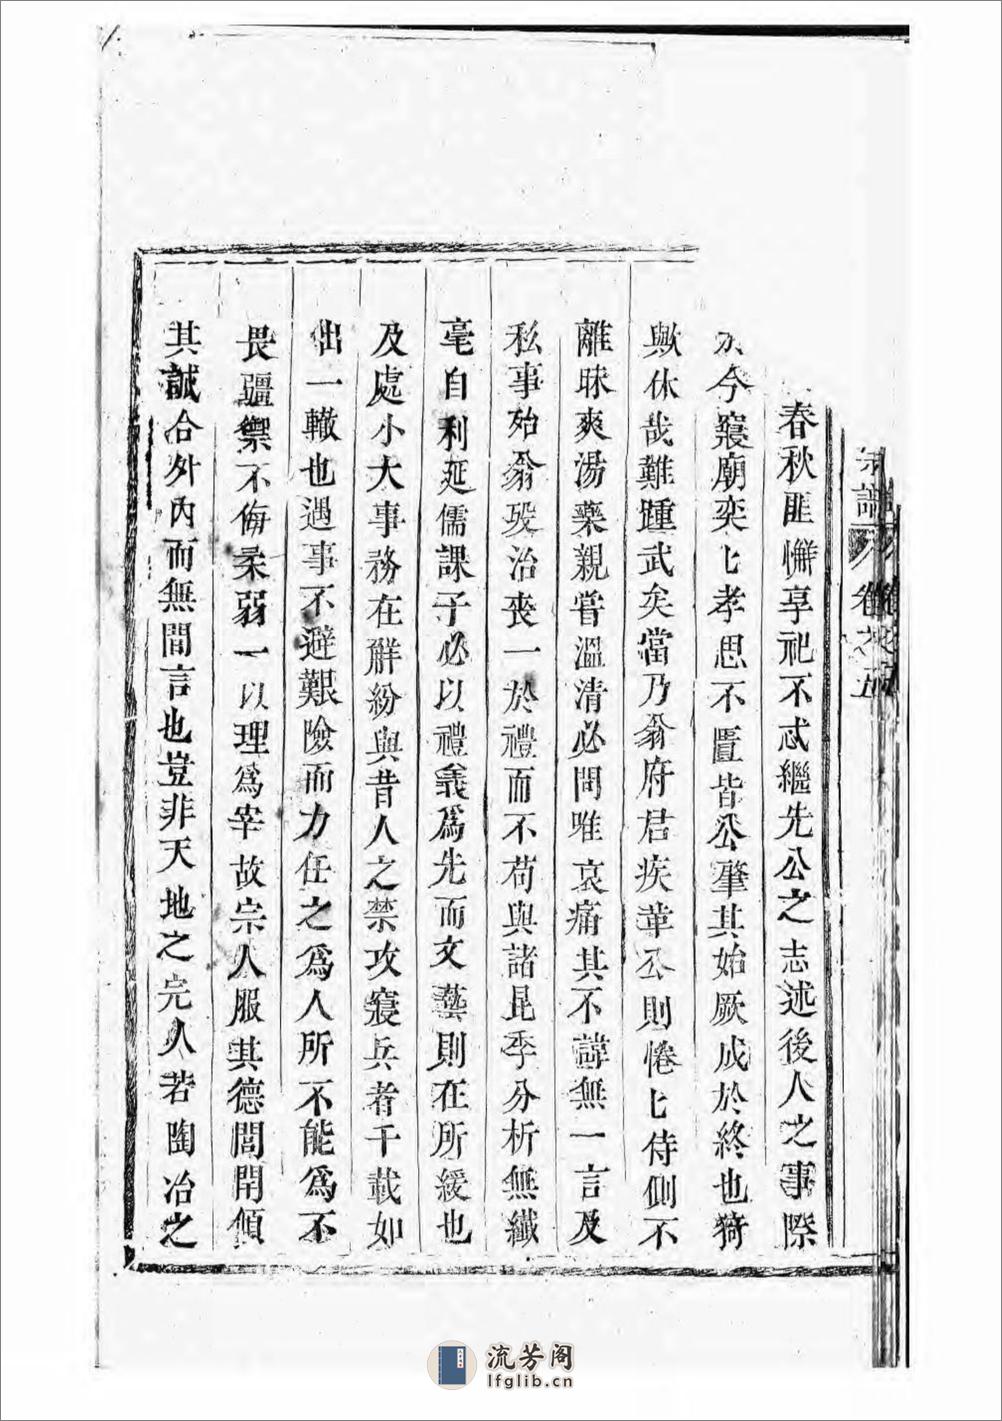 春秋匪懈享祀不忒繼先公之志述後人之事際
今寢廟奕〻孝思不匱皆公肇其始厥成於終也猗
歟休哉難踵武矣當乃翁府君疾革公則惓〻侍側不
離昧爽湯藥親嘗溫清必問唯哀痛其不諱無一言及
私事始翁歿治喪一於禮而不苟與諸昆季分析無纖
毫自利延儒課子必以禮義爲先而文藝則在所緩也
及處小大事務在觧紛與昔人之禁攻寢兵者千載如
出一轍也遇事不避艱險而力任之爲人所不能爲不
畏疆禦不侮柔弱一以理爲宰故宗人服其德閭閈傾
其誠合外內而無間言也豈非天地之完人若陶冶之
宗譜 卷之五
流芳阁
lfglib.cn